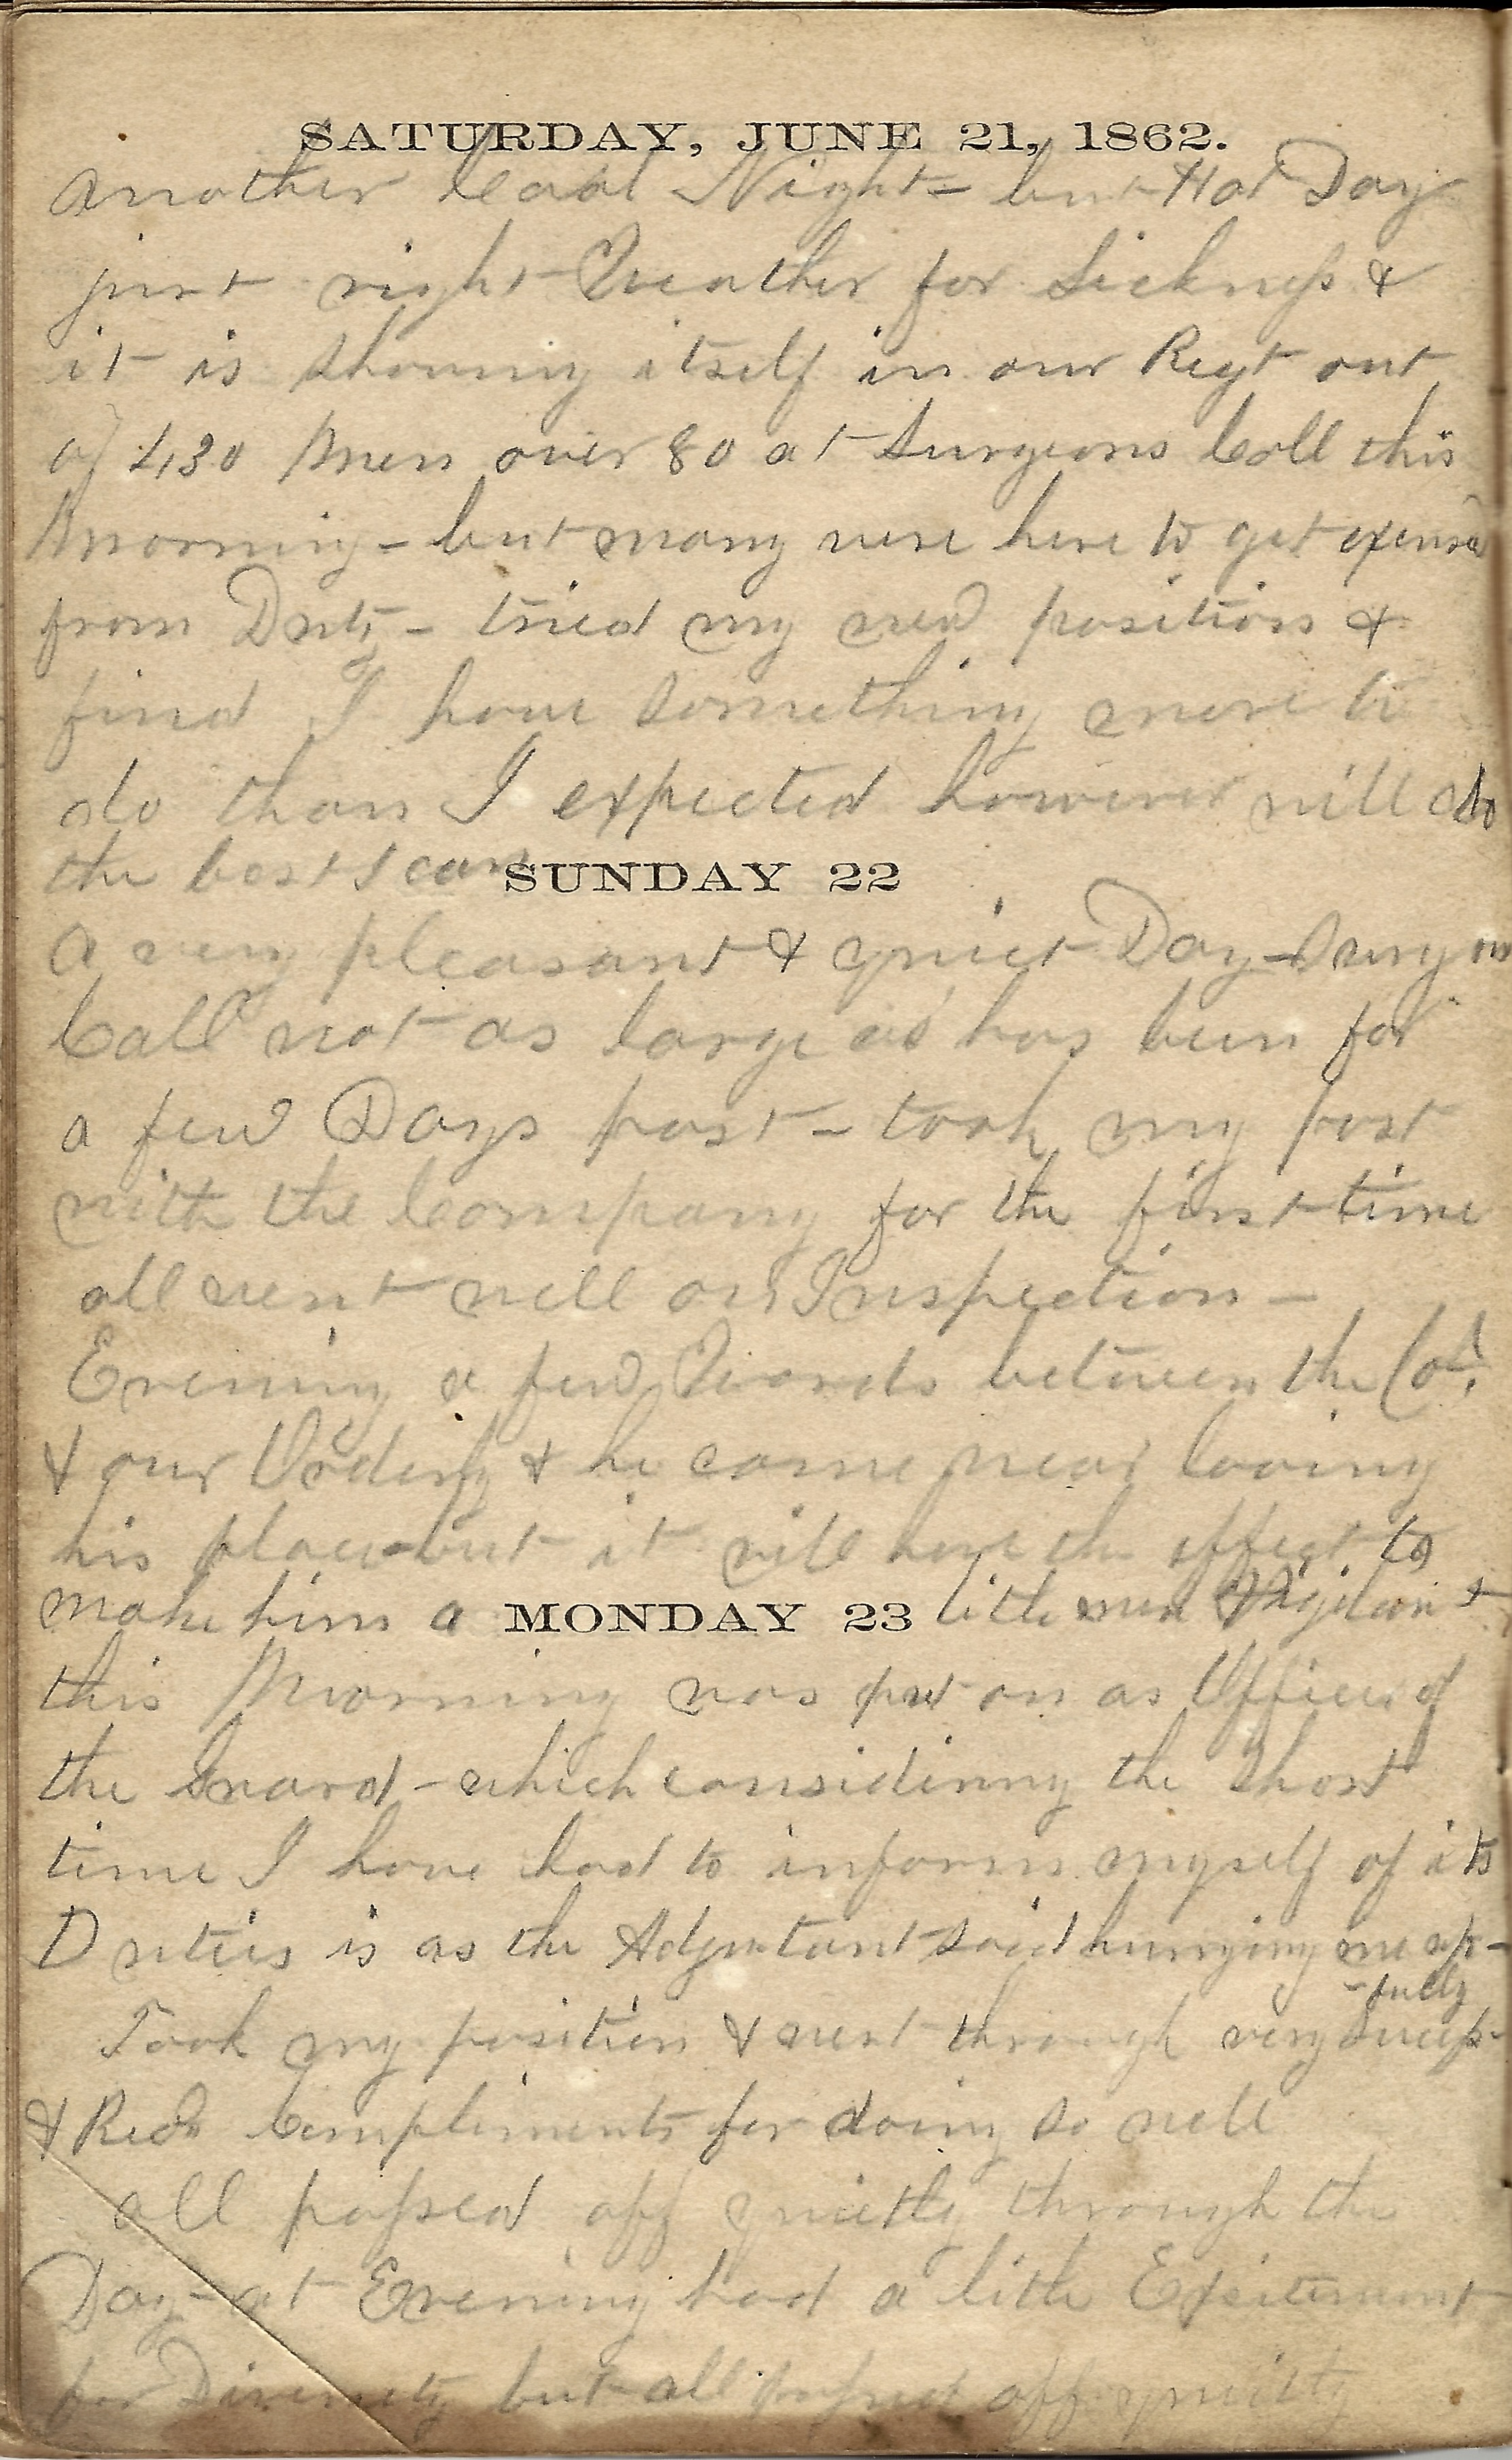 SATURDAY, JUNE 21, 1862.
Another Cool Night - but Hot Day
just right Weather for Sickness &
it is showing itself in our Regt out
of 430 Men over 80 at Surgeons Call this
Morning - but many were here to get excused
from Duty - tried my new position &
find I have something more to
do than I expected however will do
the best I can
SUNDAY 22
A very pleasant & quiet Day - Surgeons
Call not as large as has been for
a few Days past - took my post
with the Company for the first time
all went well on Inspection -
Evening a few Words between the Col.
& our Orderly & he came near loosing
his place but it will have the effect to
make him a little more Vigilant
MONDAY 23
this Morning was put on as Officer of
the Guard - which considering the Short
time I have had to inform myself of its
Duties is as the Adjutant said hurrying me up -
Took my position & went through very Success-
-fully
& Recd Compliments for doing so well
all passed off quietly through the
Day - at Evening had a litle Exsitement
for Diversity but all passed off quietly